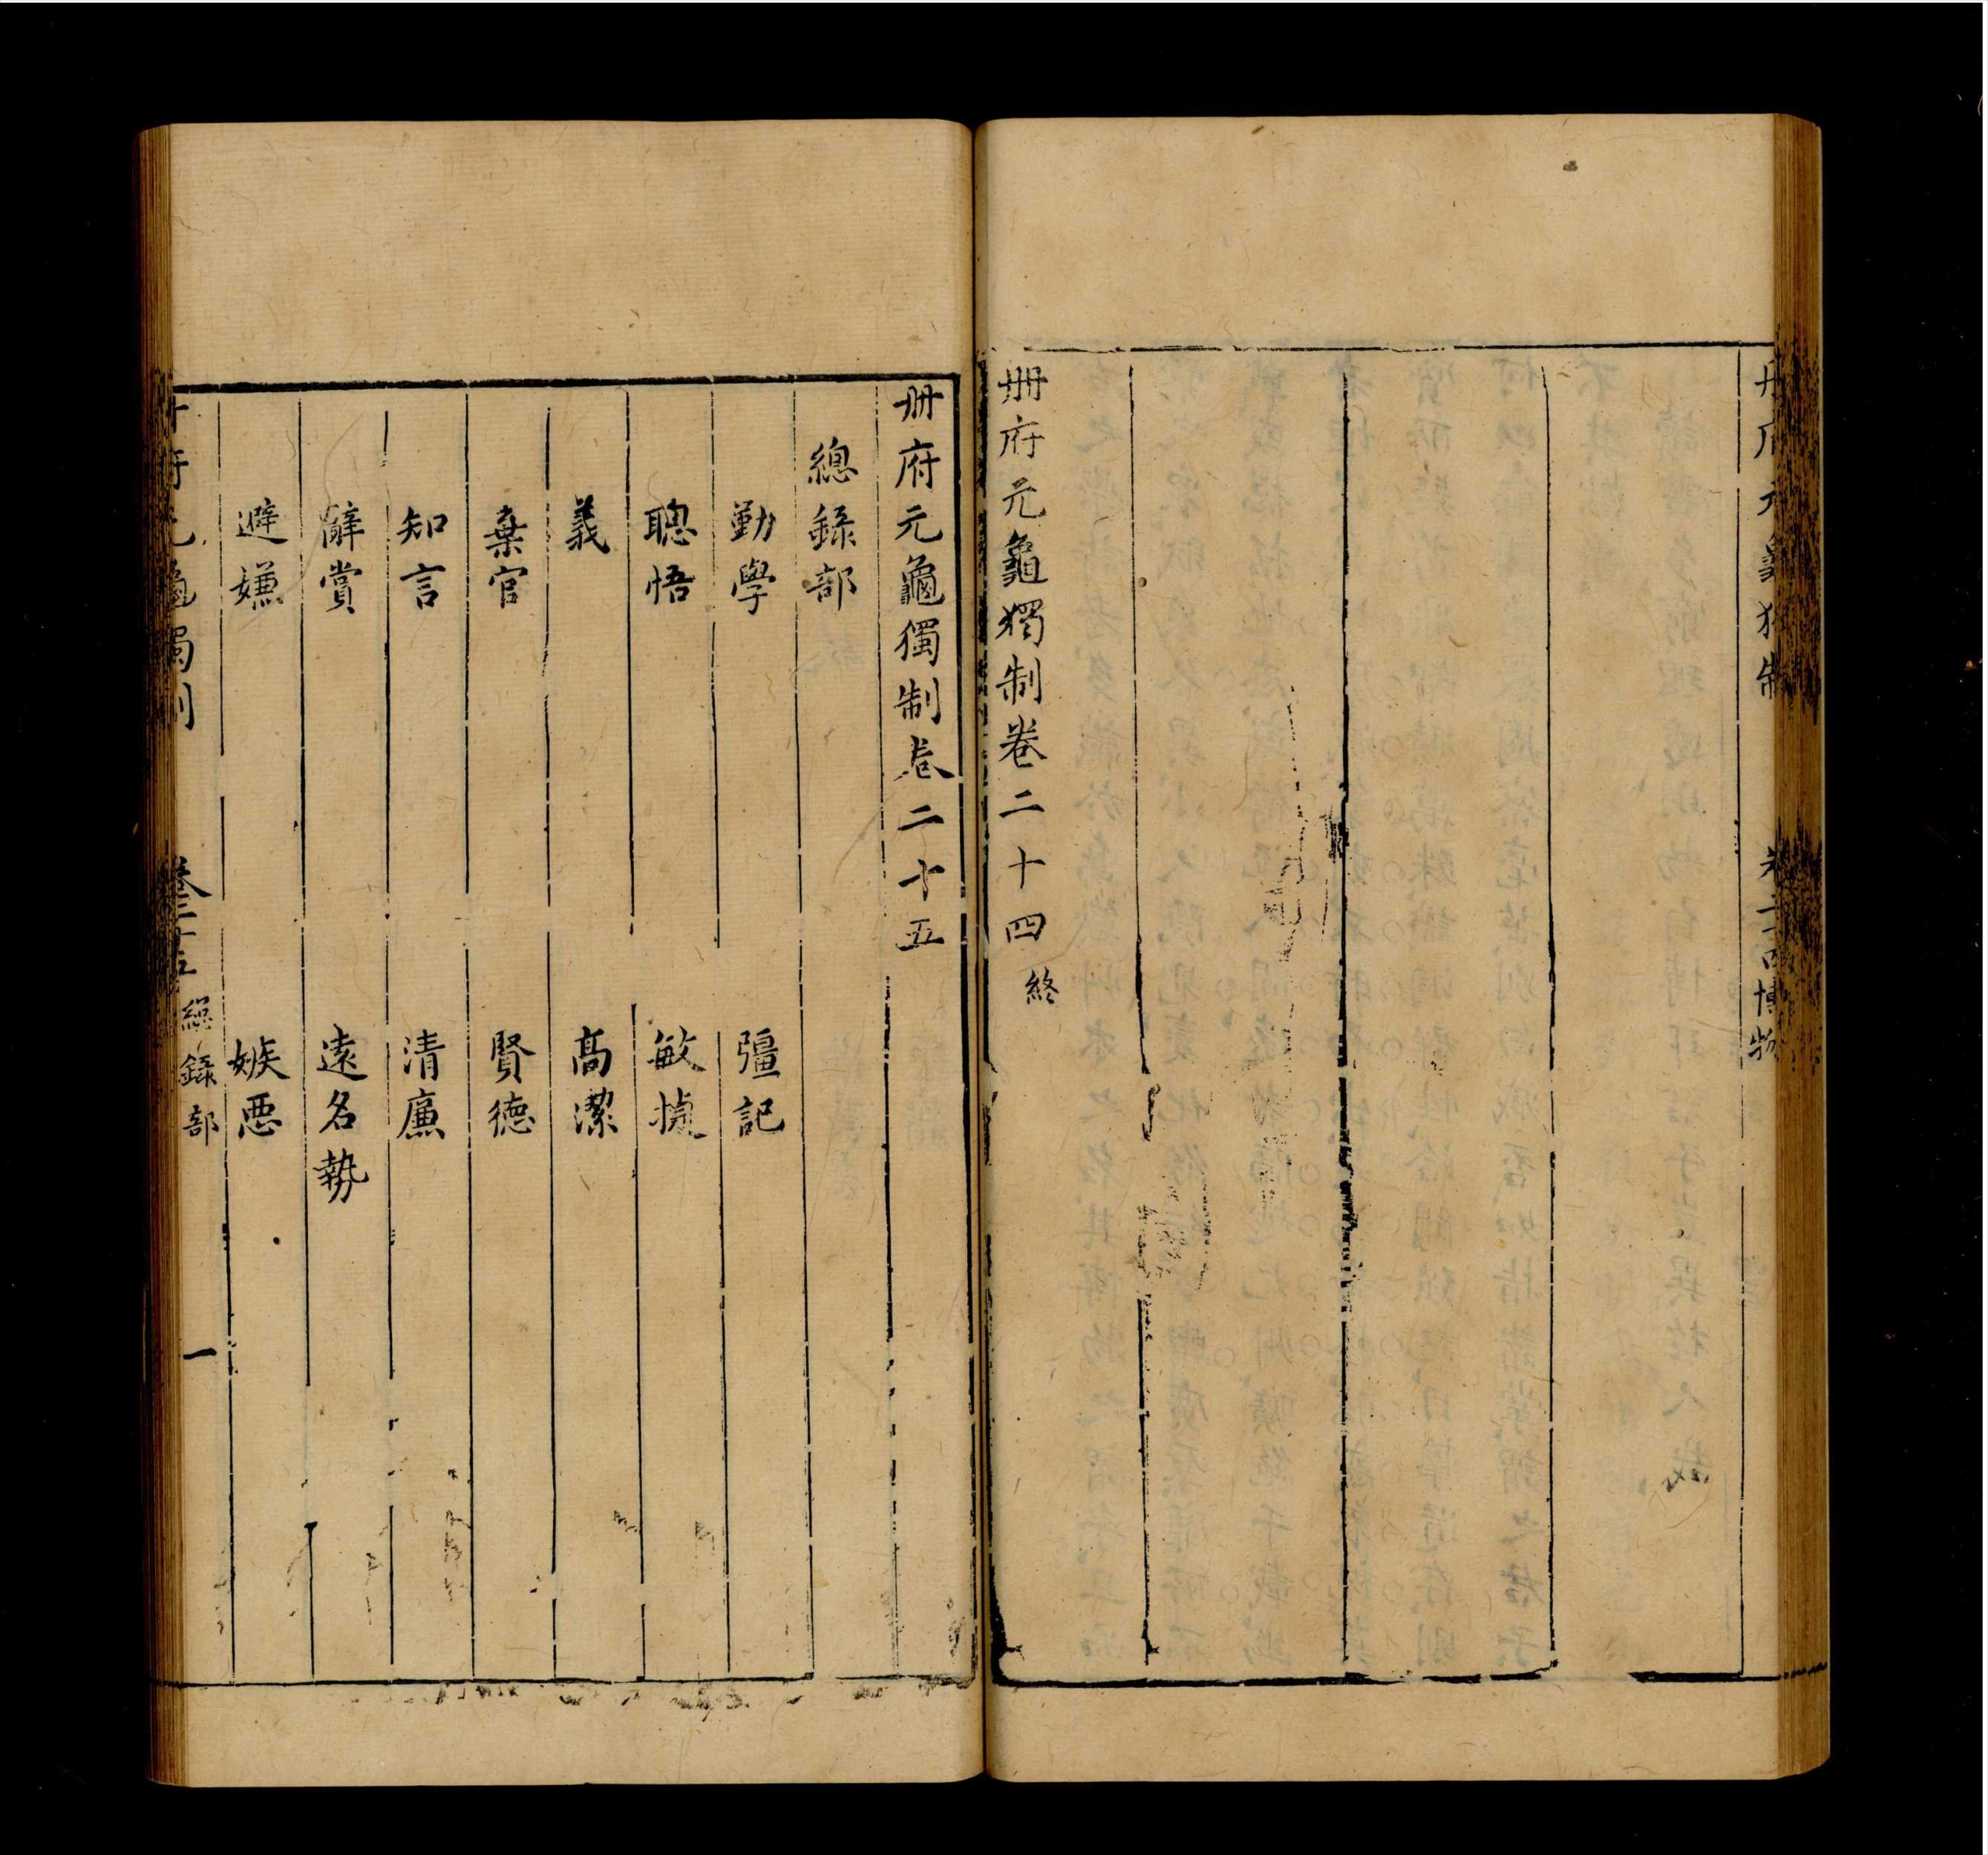 册府元龜獨制
卷二十四博物
册府元龜獨制卷二十四終
册府元龜獨制卷二十五
總錄部
勤學 彊記
聰悟 敏捷
義 高潔
棄官 賢德
知言 清廉
辭賞 遠名勢
避嫌 嫉惡
册府元龜獨制 卷二十五 總錄部 一